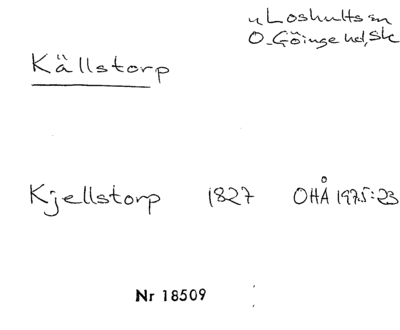 Loshults sn
Ö. Göinge hd, Sk
Källstorp
Kjellstorp 1827 OHÅ 1975:23
Nr 18509